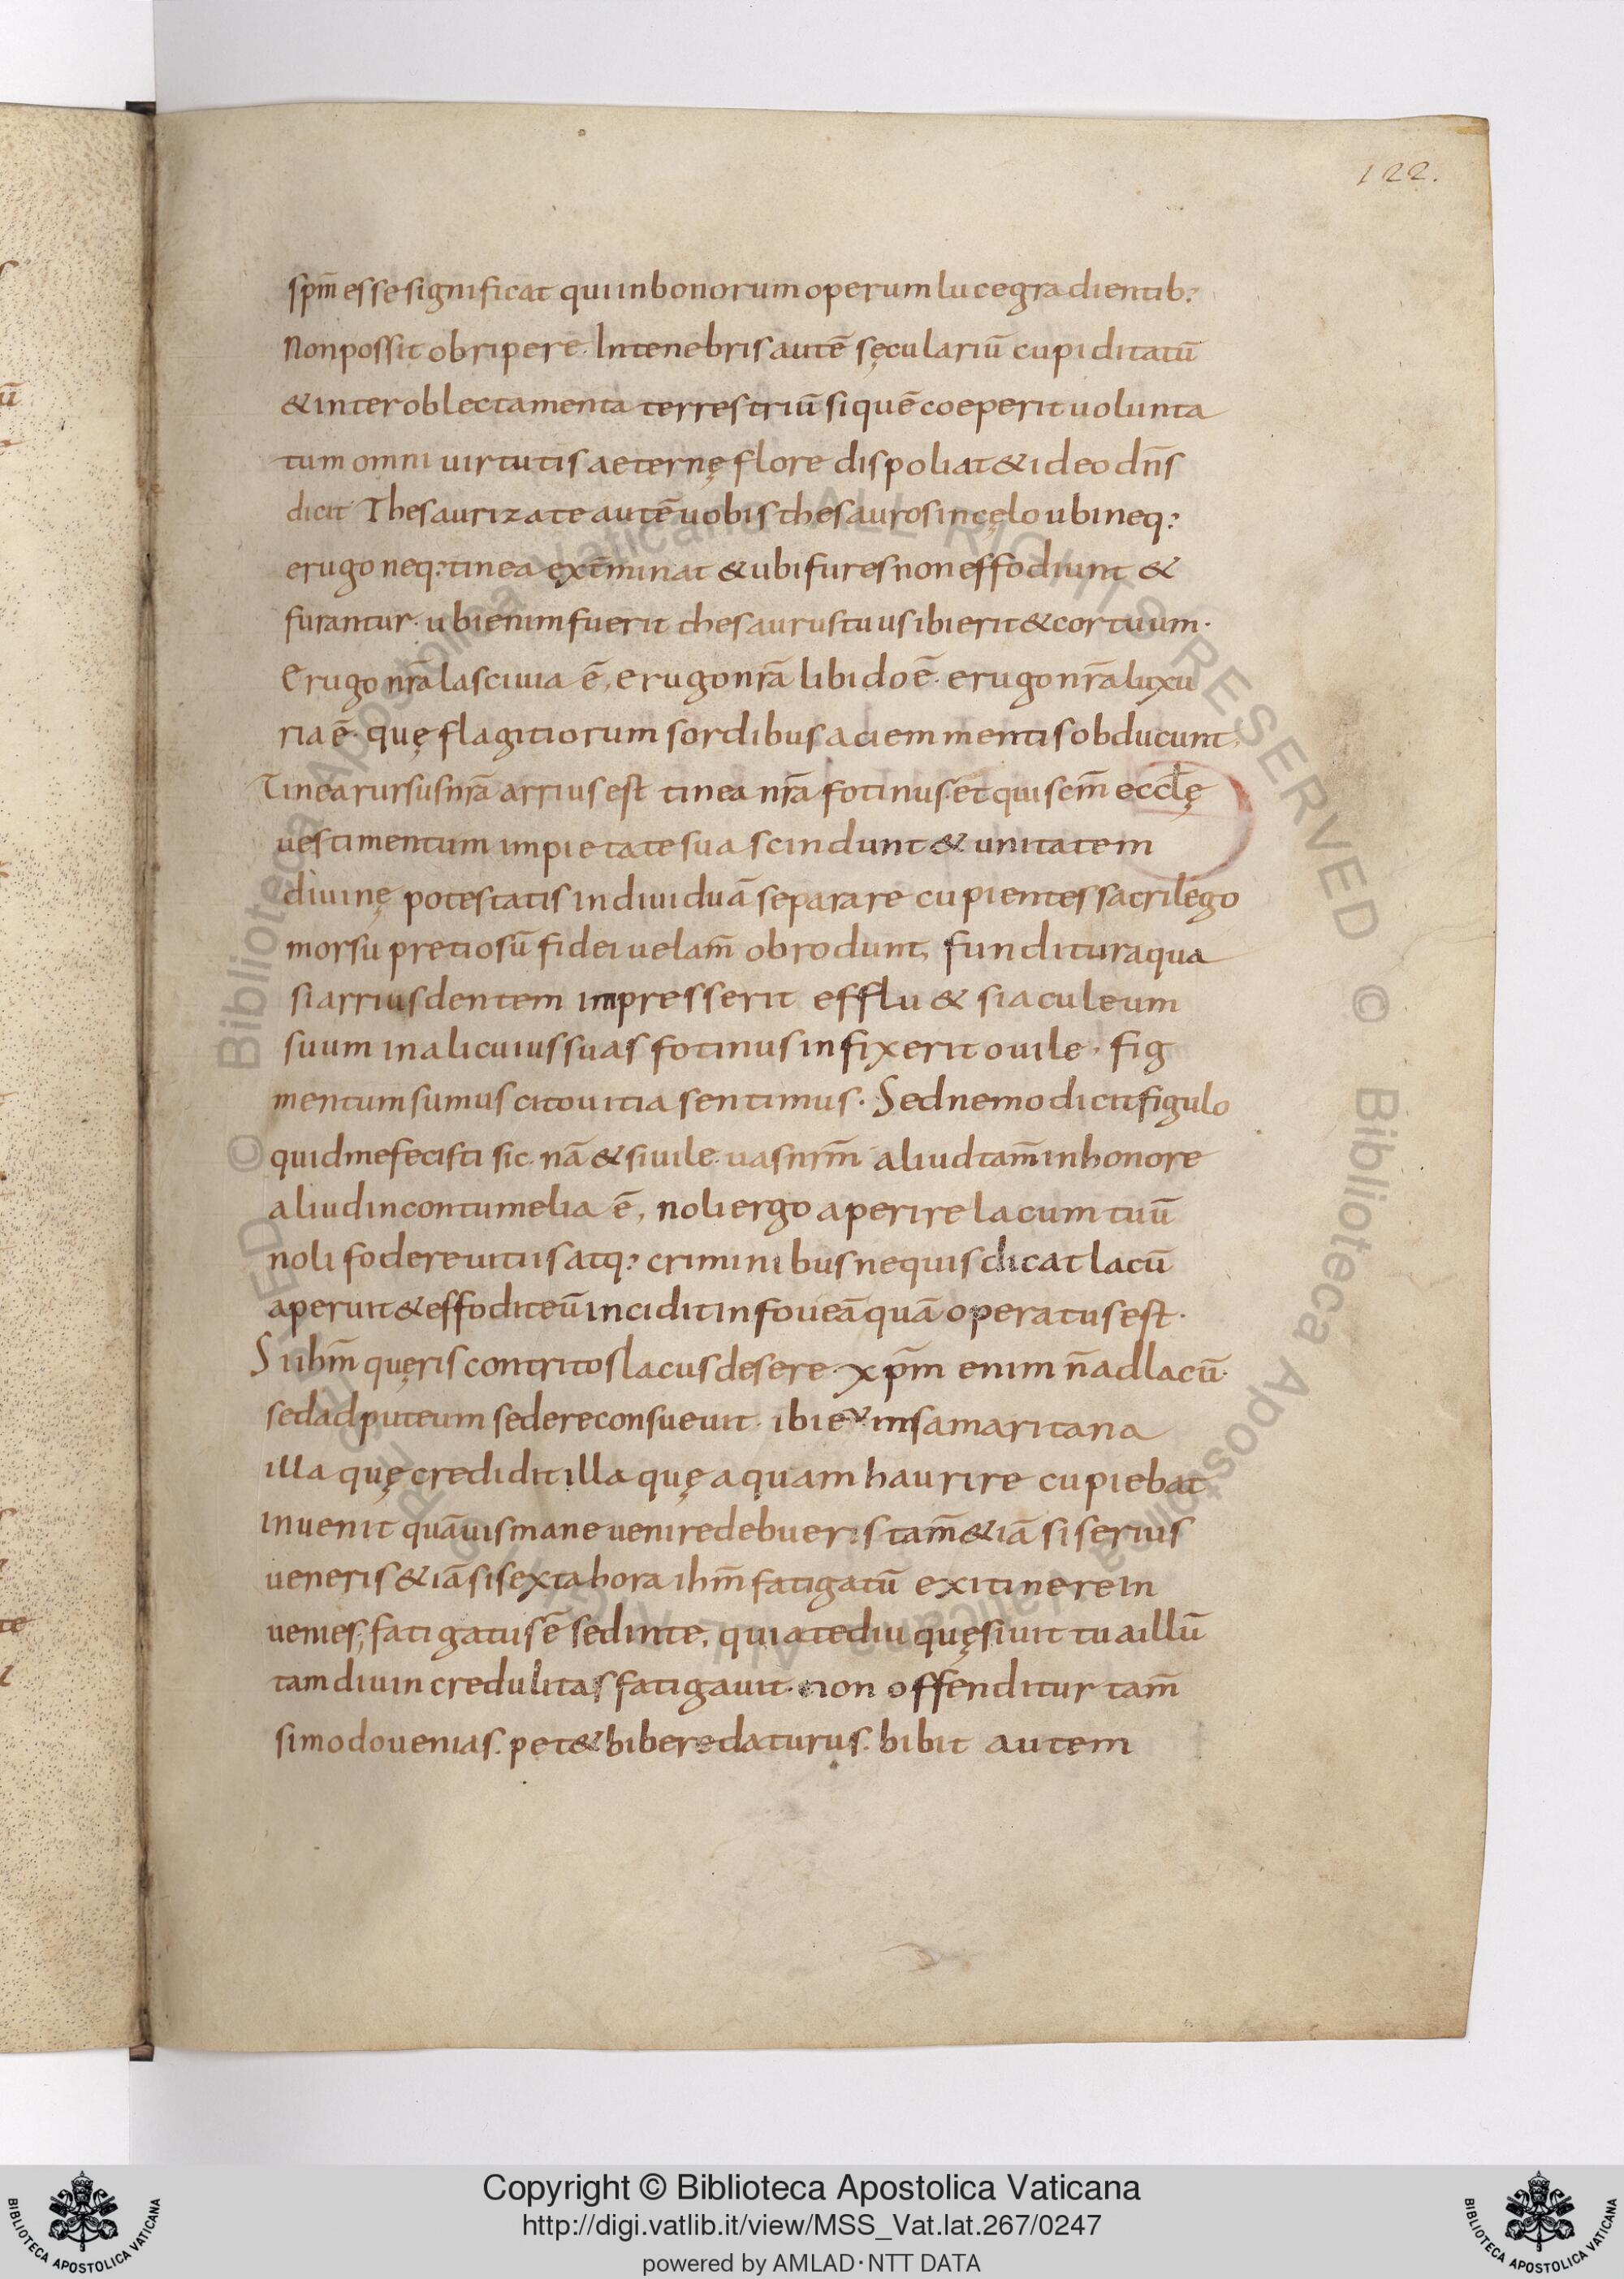 122.
sp̄m esse significat qui in bonorum operum luce gradientib:
Non possit obripere. In tenebris autē sęculariū cupiditatū
& inter oblectamenta terrestriū si quē coeperit uolunta
tum omni uirtutis aeternę flore dispoliat & ideo dn̄s
dicit Thesaurizate autē uobis thesauros in cęlo ubi neq:
erugo neq: tineaext̄minat & ubi fures non effodiunt &
furantur. ubi enim fuerit thesaurus tuus ibi erit & cor tuum.
Erugo nr̄a lasciuia ē, erugo nr̄a libido ē. erugo nr̄a luxu
ria ē. quę flagitiorum sordibus aciem mentis obducunt,
Tinea rursus nr̄a arrius est tinea nr̄a fotinus. et qui sc̄m eccl̄ę
uestimentum impietate sua scindunt & unitatem
diuinę potestatis indiuiduā separare cupientes sacrilego
morsu pretiosū fidei uelam̄ obrodunt, funditur aqua
si arrius dentem impresserit efflu& si aculeum
suum in alicuius suas fotinus infixerit ouile. fig
mentum sumus cito uitia sentimus. Sed nemo dicit figulo
quid me fecisti sic. nā & si uile uas nr̄m aliud tam̄ in honore
aliud in contumelia ē, noli ergo aperire lacum tuū
noli fodere uitiis atq: criminibus ne quis dicat lacū
aperuit & effodit eū incidit in foueā quā operatus est.
Si ihm̄ quęris contritos lacus desere. xp̄m enim n̄ ad lacū.
sed ad puteum sedere consueuit. ibi e in samaritana
illa quę credidit illa quę aquam haurire cupiebat
inuenit quāuis mane uenire debueris tam̄ & iā si serius
ueneris & iā si sexta hora ihm̄ fatigatū ex itinere in
uenies; fatigatus ē sed in te, quia te diu quęsiuit tua illū
tam diu incredulitas fatigauit. non offenditur tam̄
si modo uenias. pet& bibere daturus. bibit autem
Copyright © Biblioteca Apostolica Vaticana
http://digi.vatlib.it/view/MSS_Vat.lat.267/0247
powered by AMLAD · NTT DATA
BIBLIOTECA APOSTOLICA VATICANA
BIBLIOTECA APOSTOLICA VATICANA